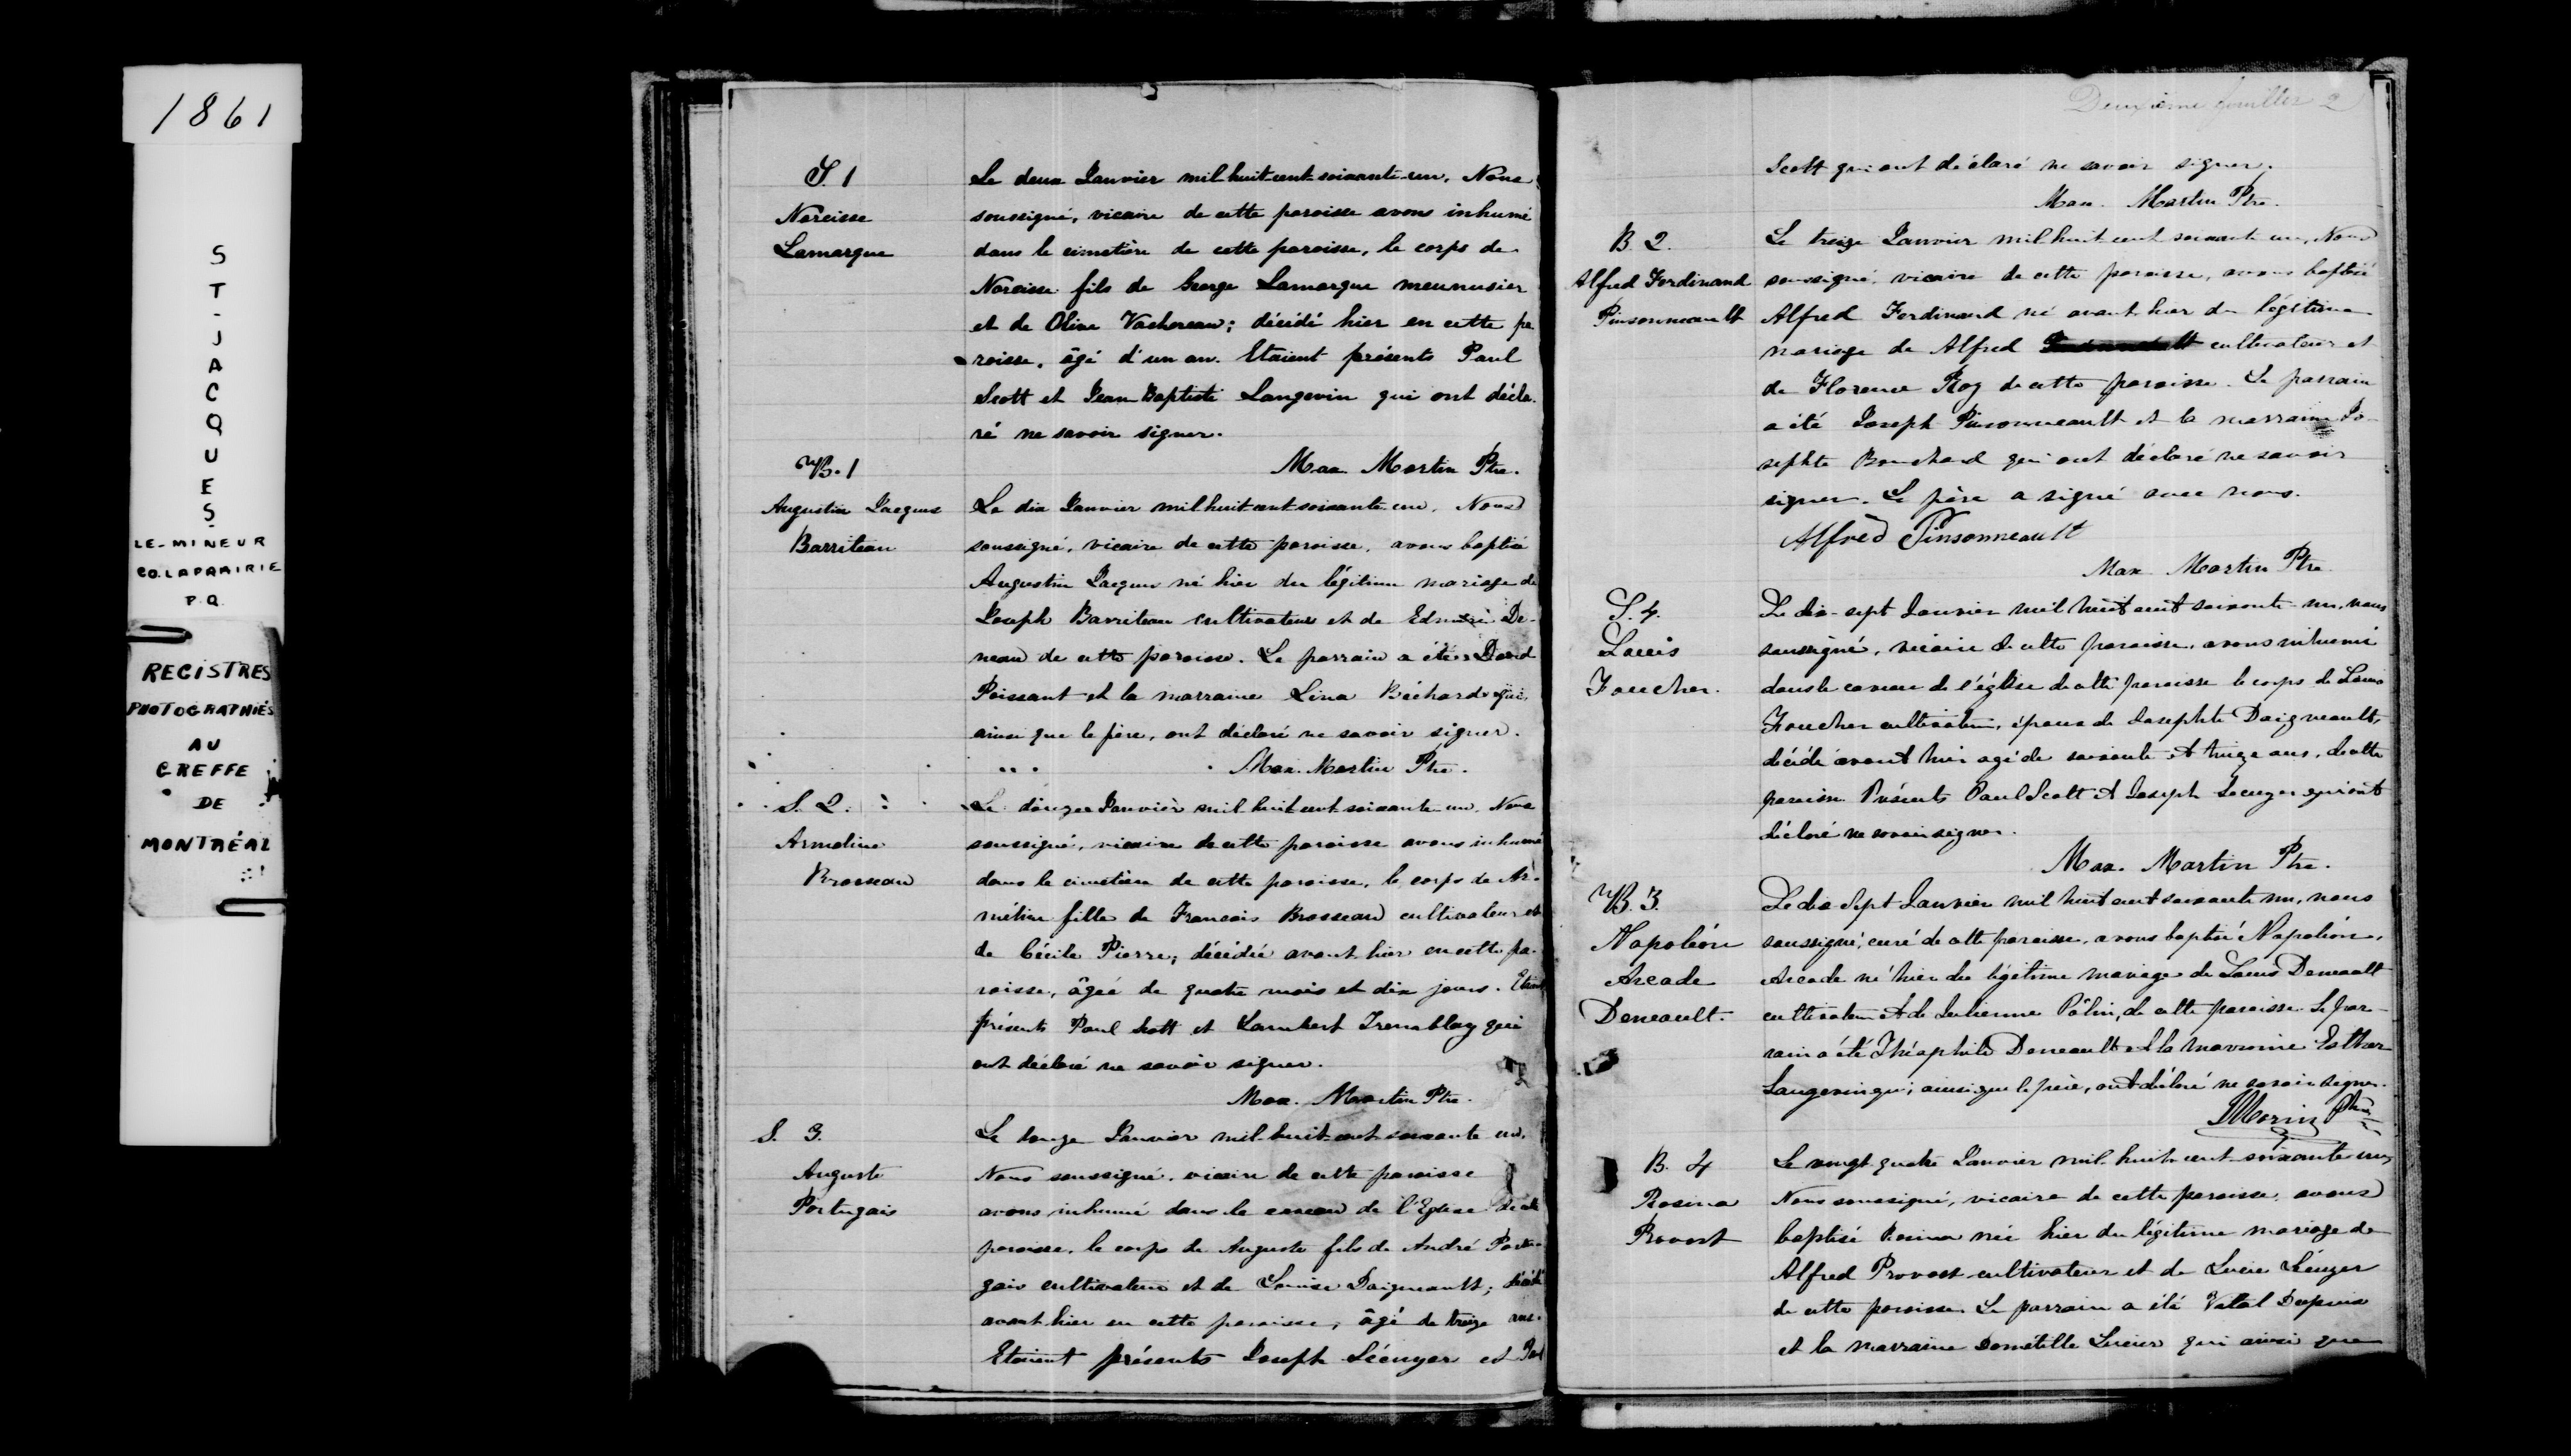 1861
S
T
-
J
A
C
Q
U
E
S
-
LE-MINEUR
CO. LAPRAIRIE
P.Q.
REGISTRES
PHOTOGRAPHIÉS
AU
GREFFE
DE
MONTRÉAL
S. 1
Narcisse
Lamarque
Le deux Janvier mil huit cent soixante-un, Nous
soussigné, vicaire de cette paroisse avons inhumé
dans le cimetière de cette paroisse, le corps de
Narcisse fils de George Lamarque menuisier
et de Olive Vachereau; décédé hier en cette pa
roisse, âgé d'un an. Etaient présents Paul
Scott et Jean Baptiste Langevin qui ont décla-
ré ne savoir signer.
Max Martin Ptre.
B. 1
Augustin Jacques
Barriteau
Le dix Janvier mil huit cent soixante-un, Nous
soussigné, vicaire de cette paroisse, avons baptisé
Augustin Jacques né hier du légitime mariage de
Joseph Barriteau cultivateur et de De-
neau de cette paroisse. Le parrain a été David
Poissant et la marraine Lina Béchard qui,
ainsi que le père, ont déclaré ne savoir signer.
Max. Martin Ptre.
S. 2.
Armeline
Brosseau
Le douze Janvier mil huit cent soixante-un, Nous
soussigné, vicaire de cette paroisse avons inhumé
dans le cimetière de cette paroisse, le corps de Ar-
méline fille de Francois Brosseau cultivateur et
de Cécile Pierre; décédée avant hier en cette pa-
roisse, âgée de quatre mois et dix jours. Etaient
présents Paul Scott et Lambert Tremblay qui
ont déclaré ne savoir signer.
Max. Martin Ptre.
S. 3.
Auguste
Portugais
Le douze Janvier mil-huit-cent soixante un,
Nous soussigné, vicaire de cette paroisse
avons inhumé dans le caveau de l'Eglise de cette
paroisse, le corps de Auguste fils de André Portu-
gais cultivateur et de Louise Daigneault; décédé
avant hier en cette paroisse, âgé de treize ans.
Etaient présents Joseph Lécuyer et Paul
Deuxième feuillet 2
Scott qui ont déclaré ne savoir signer.
Max. Martin Ptre.
B. 2.
Alfred Ferdinand
Pinsonneault
Le treize Janvier mil huit cent soixante un, Nous
soussigné, vicaire de cette paroisse, avons baptisé
Alfred Ferdinand né avant hier du légitime
mariage de Alfred cultivateur et
de Florence Roy de cette paroisse. Le parrain
a été Joseph Pinsonneault et la marraine Jo-
sephte Bouchard qui ont déclaré ne savoir
signer. Le père a signé avec nous.
Alfred Pinsonneault
Max Martin Ptre
S. 4.
Louis
Foucher.
Le dix-sept Janvier mil huit cent soixante-un, nous
soussigné, vicaire de cette paroisse, avons inhumé
dans le caveau de l'église de cette paroisse le corps de Louis
Foucher cultivateur, époux de Josephte Daigneault,
décédé avant hier agé de soixante et treize ans, de cette
paroisse. Présents Paul Scott et Joseph Lecuyer qui ont
déclaré ne savoir signer.
Max. Martin Ptre.
B. 3.
Napoléon
Arcade
Deneault.
Le dix-sept Janvier mil huit cent soixante un, nous
soussigné, curé de cette paroisse, avons baptisé Napoléon,
Arcade né hier du légitime mariage de Louis Deneault
cultivateur et de Julienne Pôlin, de cette paroisse. Le par-
rain a été Théophile Deneault et la marraine Esther
Langevin qui, ainsi que le père, ont déclaré ne savoir signer.
Morin Ptre
B. 4
Rosina
Provost
Le vingt quatre Janvier mil huit cent soixante un,
Nous soussigné, vicaire de cette paroisse, avons
baptisé Rosina née hier du légitime mariage de
Alfred Provost cultivateur et de Lucie Lécuyer
de cette paroisse. Le parrain a été Vital Dupuis
et la marraine Dométille Lucier qui ainsi que